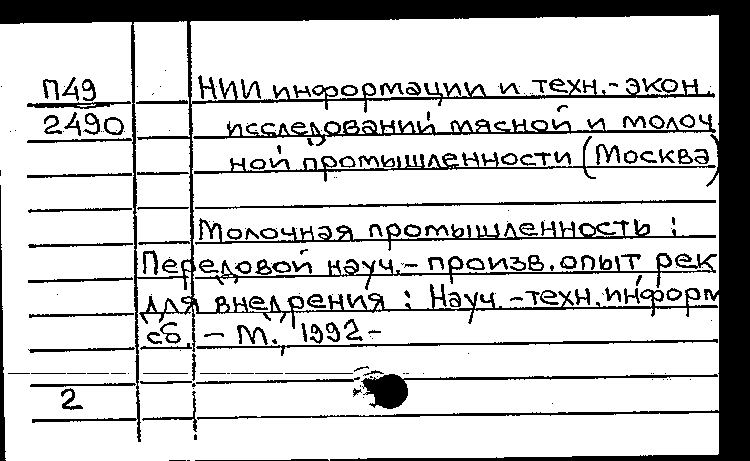 П49
2490
НИИ информации и техн.-экон.
исследований мясной и молоч
ной промышленности (Москва)
Молочная промышленность :
Передовой науч.-произв. опыт рек
для внедрения : Науч.-техн. информ
сб. - М., 1992-
2